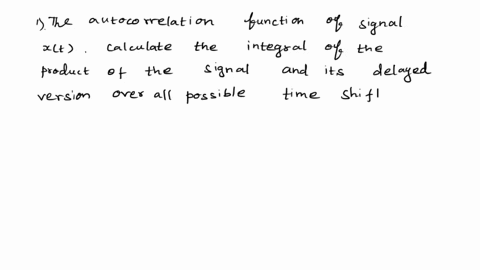 1) The autocorrelation function of signal
x(t). calculate the integral of the
product of the signal and its delayed
version over all possible time shifl